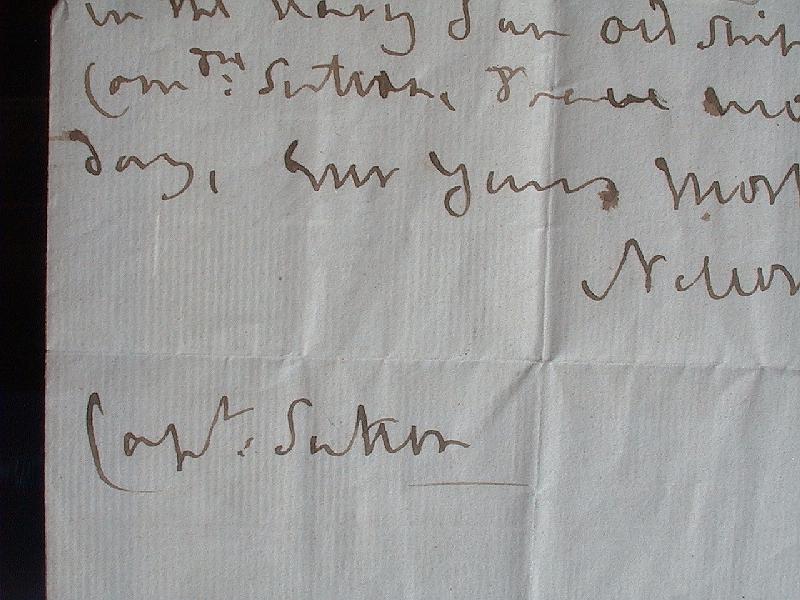 in the Navy & an old ship
Sutton,
day, ever yours most
Nelson
Capt: Sutton